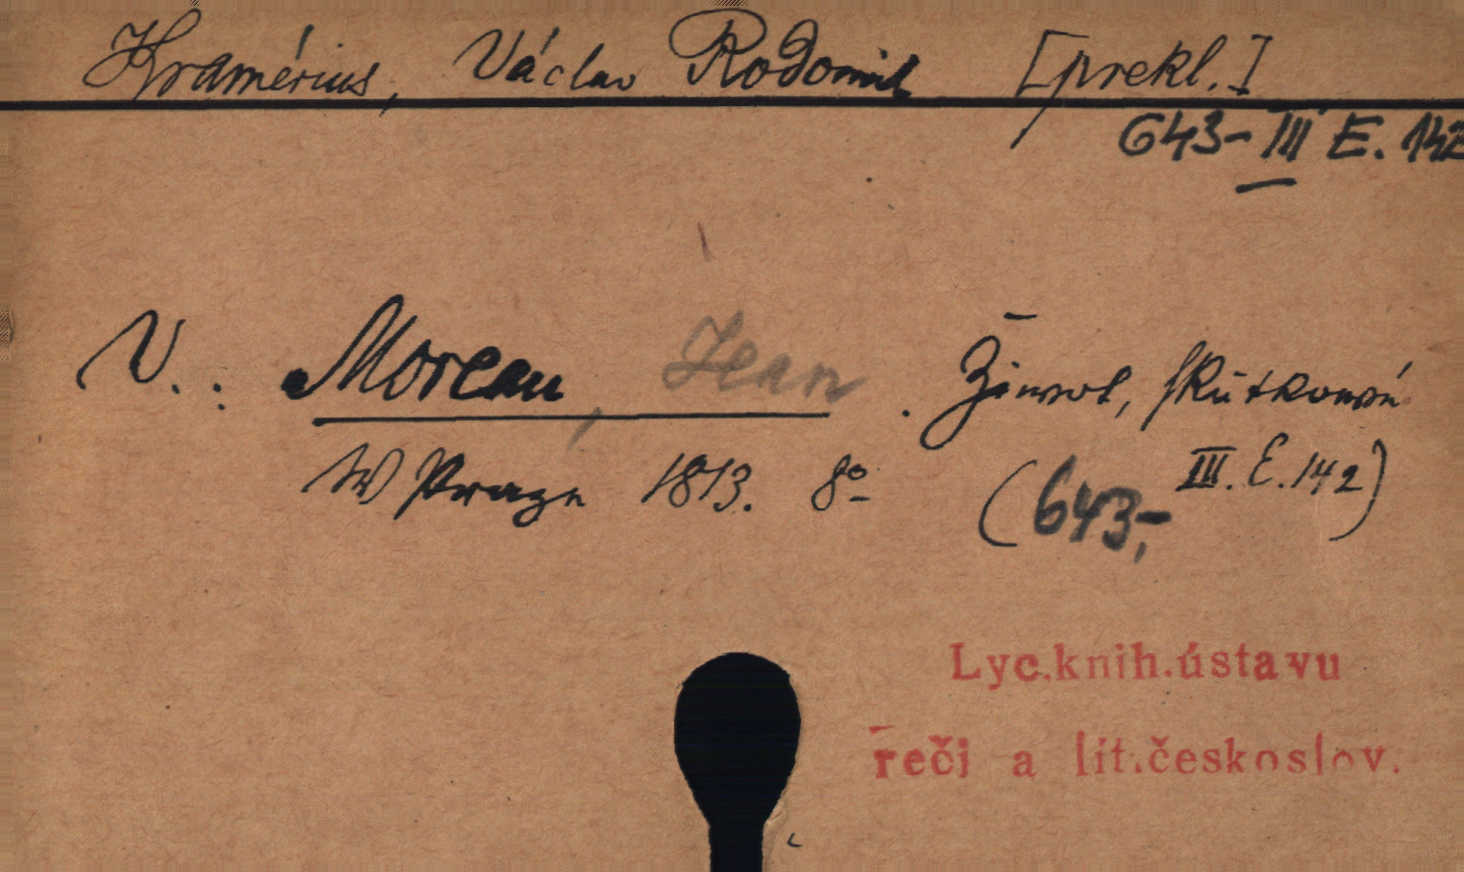 Kramérius, Václav Rodomil [prekl.]
643-III E. 142
V.: Moreau, Jean. Žiwot, skutkowé
W Praze 1813. 8º (643,- III. E. 142)
Lyc.knih.ústavu
řeči a lit.českoslov.